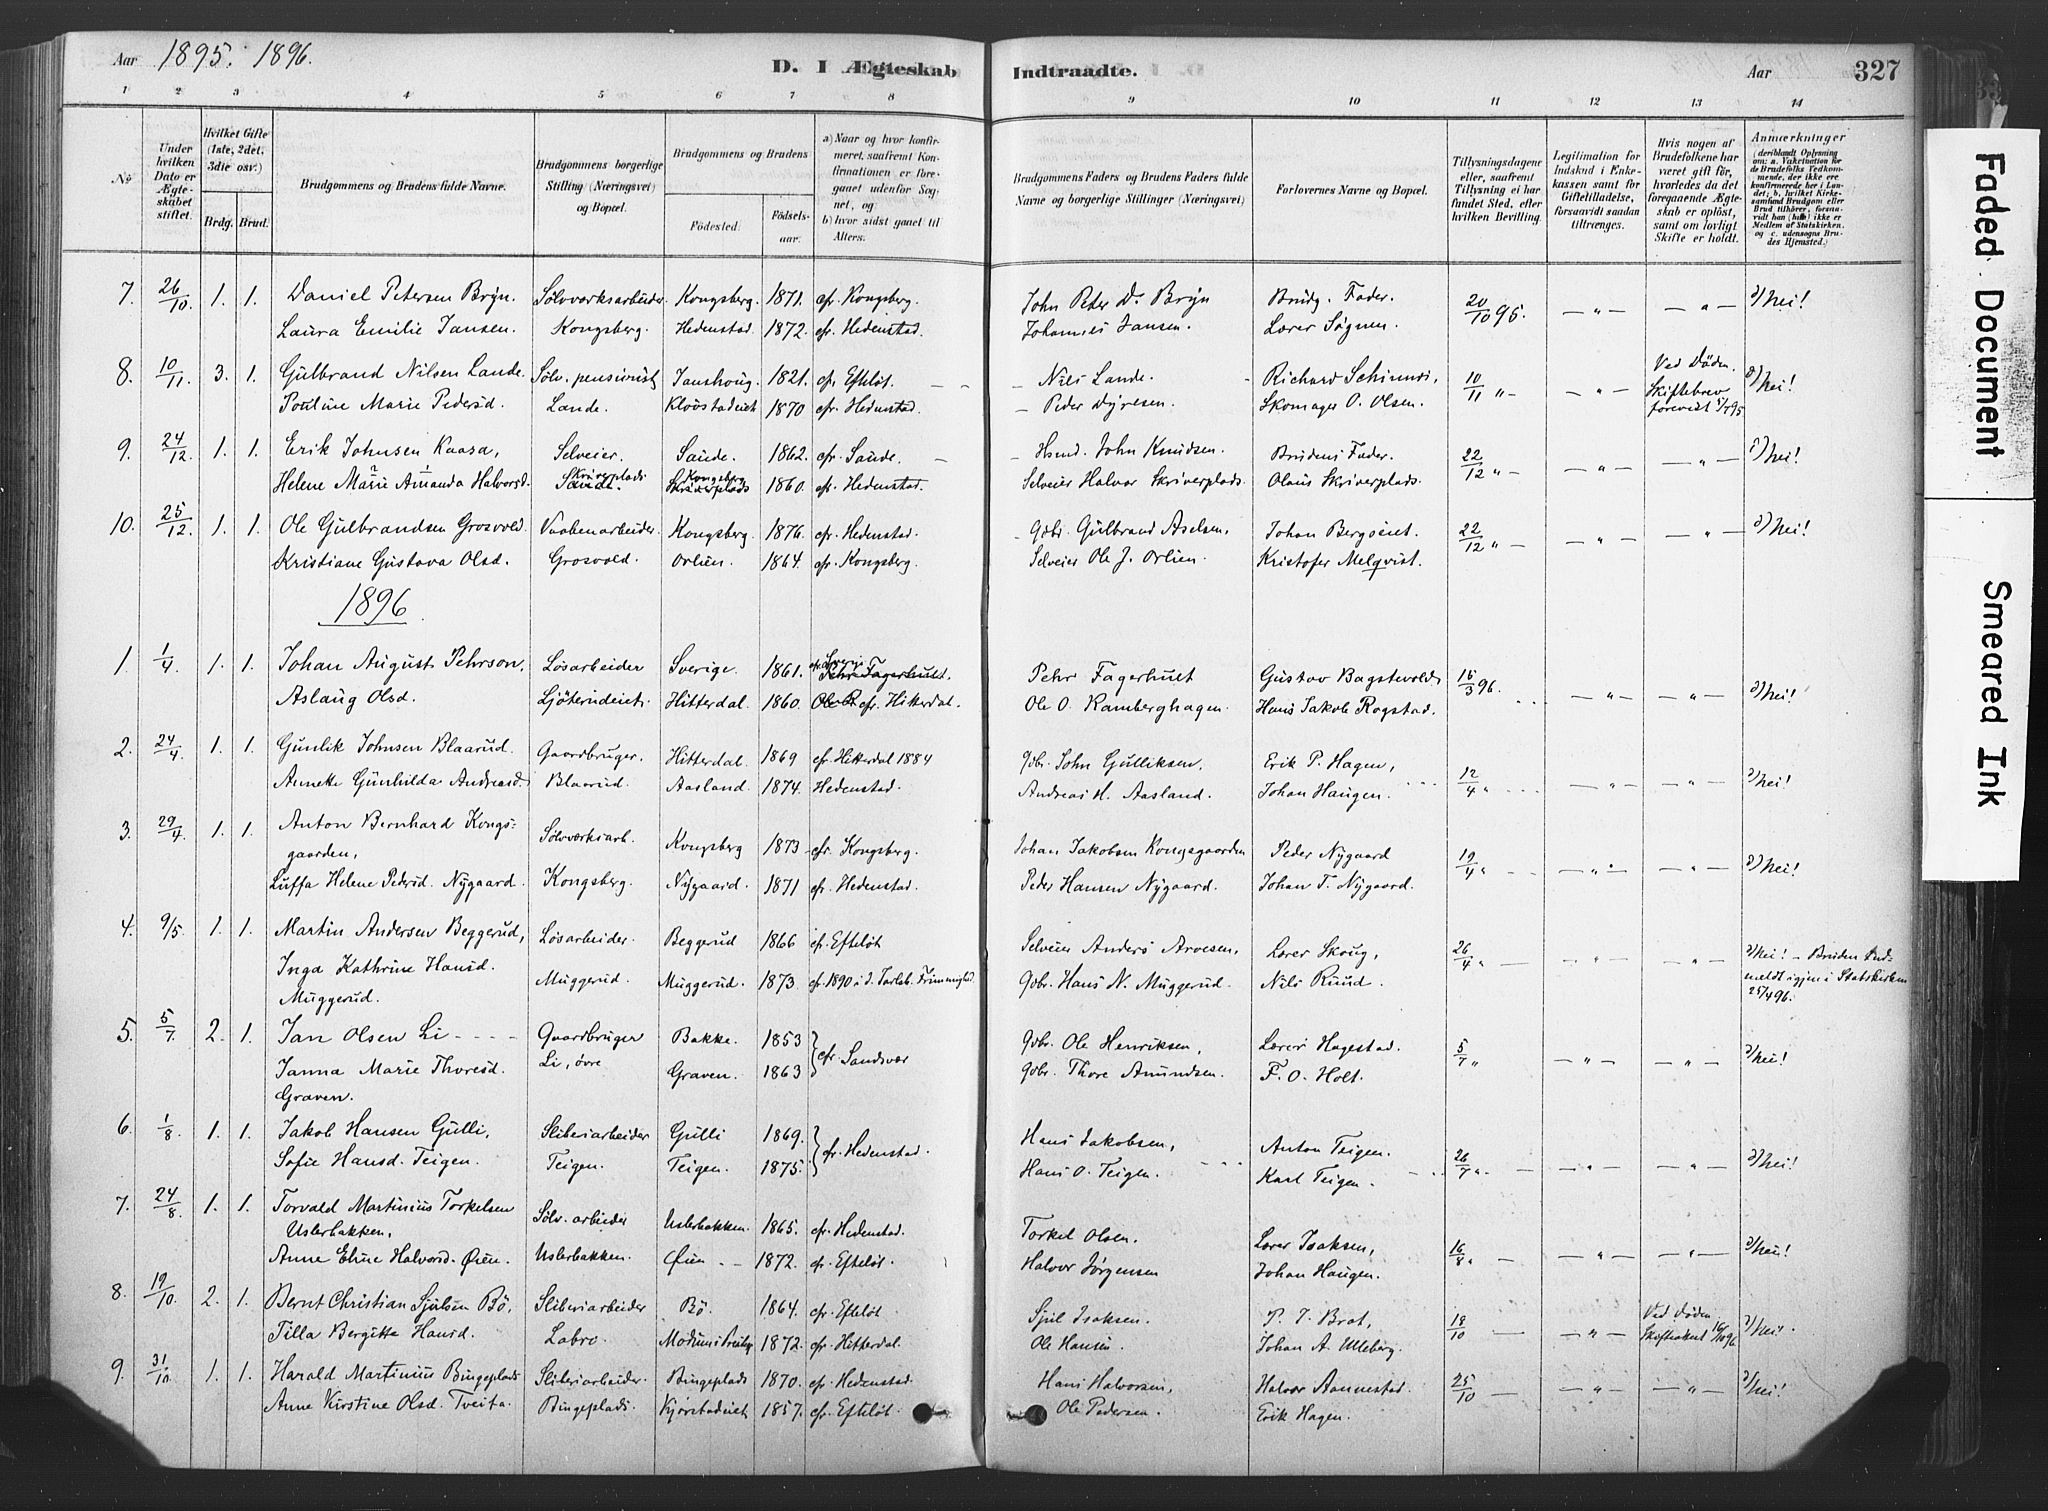 Aar 1895. 1896.
D. I Ægteskab Indtraadte.
Aar 327
1 2 3 4 5 6 7 8 9 10 11 12 13 14
No
Under hvilken Dato er Ægteskabet stiftet.
Hvilket Gifte (1ste, 2det, 3die osv.)
Brdg. Brud.
Brudgommens og Brudens fulde Navne.
Brudgommens borgerlige Stilling (Næringsvei) og Bopæl.
Brudgommens og Brudens
Fødested. Fødselsaar.
a) Naar og hvor konfirmeret, saafremt Konfirmationen er foregaaet udenfor Sognet, og
b) hvor sidst gaaet til Alters.
Brudgommens Faders og Brudens Faders fulde Navne og borgerlige Stillinger (Næringsvei)
Forlovernes Navne og Bopæl.
Tillysningsdagene eller, saafremt Tillysning ei har fundet Sted, efter hvilken Bevilling.
Legitimation for Indskud i Enkekassen samt for Giftetilladelse, forsaavidt saadan tiltrænges.
Hvis nogen af Brudefolkene har været gift før, hvorledes da det foregaaende Ægteskab er opløst, samt om lovligt Skifte er holdt.
Anmærkninger (deriblandt Oplysning om: a. Vakcination for de Brudefolks Vedkommende, der ikke ere konfirmerede her i Landet; b. hvilket Kirkesamfund Brudgom eller Brud tilhører, forsaavidt han (hun) ikke er Medlem af Statskirken, og c. udensogns Brudes Hjemsted.)
7. 26/10 1. 1. Daniel Petersen Bryn. Sølvverksarbeider Kongsberg. 1871. cfr. Kongsberg. John Peter D. Bryn Brudg. Fader. 20/10 95. — " — — " — Nei!
Laura Emilie Jansen. Kongsberg. Hedenstad. 1872. cfr. Hedenstad. Johannes Jansen. Lærer Søgnen.
8. 10/11. 3. 1. Gulbrand Nilsen Lande. Sølv. pensionist Janshoug. 1821. cfr. Efteløt. Nils Lande. Richard Schirmer, 10/11 " — — " — Ved Døden. Nei!
Pouline Marie Pedersd. Lande. 1870 cfr. Hedenstad. Peder Dyresen. Skomager O. Olsen. Skiftebrev forevist
9. 24/12 1. 1. Erik Johnsen Kaasa, Selveier. Saude. 1862. cfr. Saude. Hsmd. John Knudsen. Brudens Fader. 22/12 " — — " — — " — Nei!
Helene Marie Amanda Halvorsd. Skriverplads Kongsberg Skriverplads 1860. cfr. Hedenstad. Selveier Halvor Skriverplads. Olaus Skriverplads.
10. 25/12. 1. 1. Ole Gulbrandsen Grosvold. Vaabenarbeider. Kongsberg. 1876. cfr. Hedenstad. Gdbr. Gulbrand Aselsen, Johan Bergseiet. 22/12 " — — " — — " — Nei!
Kristiane Gustava Olsd. Grosvold. Orlien. 1864. cfr. Kongsberg. Selveier Ole J. Orlien. Kristofer Melqvist.
1896
1. 1/4 1. 1. Johan August Pehrson, Løsarbeider Sverige. 1861. Pehr Fagerhult. Pehr Fagerhult Gustav Bagstevold 15/3 96. — " — — " — Nei!
Aslaug Olsd. Ljøterudeiet. Hitterdal. 1860. cfr. Hitterdal. Ole O. Ramberghagen. Hans Jakob Rogstad.
2. 24/4 1. 1. Gunlik Johnsen Blaarud. Gaardbruger. Hitterdal. 1869 cfr. Hitterdal 1884 Gdbr. John Gulliksen, Erik P. Hagen, 12/4 " — " — — " — Nei!
Annette Gunhilda Andreasd. Blaarud. Aasland. 1874. Hedenstad. Andreas H. Aasland. Johan Haugen.
3. 29/4. 1. 1. Anton Bernhard Kongsgaarden, Sølvverksarb. Kongsberg 1873 cfr. Kongsberg. Johan Jakobsen Kongsgaarden Peder Nygaard 19/4 " — " — — " — Nei!
Luffa Helene Pedersd. Nygaard. Kongsberg. Nygaard. 1871 cfr. Hedenstad. Peder Hansen Nygaard. Johan T. Nygaard.
4. 9/5. 1. 1. Martin Andersen Beggerud, Løsarbeider. Beggerud 1866 cfr. Efteløt Selveier Anders Arvesen, Lærer Skoug, 26/4 " — — " — — " — Nei! – Bruden Indmeldt igjen i Statskirken 25/4 96.
Inga Kathrine Hansd. Muggerud. Muggerud. Muggerud. 1873. cfr. 1890 i d. Jarlsb. Frimenighed Gdbr. Hans N. Muggerud. Nils Ruud.
5. 5/7. 2. 1. Jan Olsen Li Gaardbruger Bakke. 1853 cfr. Sandsvær Gdbr. Ole Henriksen, Lærer Hagestad. 5/7 " — " — — " — Nei!
Janna Marie Thoresd. Graven. Li, övre Graven. 1863 Gdbr. Thore Amundsen. F. O. Holt.
6. 1/8. 1. 1. Jakob Hansen Gulli, Sliberiarbeider Gulli 1869. cfr. Hedenstad. Hans Jakobsen, Anton Teigen. 26/7 " — — " — — " — Nei!
Sofie Hansd. Teigen. Teigen. Teigen. 1875. Hans O. Teigen. Karl Teigen.
7. 24/8. 1. 1. Torvald Martinius Torkelsen Uslerbakken, Sølv. arbeider Uslerbakken. 1865. cfr. Hedenstad. Torkel Olsen. Lærer Isaksen, 16/8 " — — " — — " — Nei!
Anne Eline Halvorsd. Øien. Uslerbakken. Øien 1872. cfr. Efteløt. Halvor Jørgensen Johan Haugen.
8. 19/10. 2. 1. Bernt Christian Sjulsen Bö, Sliberiarbeider Bö. 1864. cfr. Efteløt Sjul Isaksen. P. J. Brat, 18/10 — — " — Ved Døden. Nei.
Tilla Bergitte Hansd. Labro. 1872. cfr. Hitterdal. Ole Hansen. Johan A. Ulleberg.
9. 31/10. 1. 1. Harald Martinius Bingeplads Sliberiarbeider. Bingeplads 1870. cfr. Hedenstad. Hans Halvorsen, Halvor Aannestad. 25/10 — — " — — " — Nei!
Anne Kirstine Olsd. Tveita. Bingeplads. Kjørstadeiet 1857. cfr. Efteløt. Ole Pedersen. Erik Hagen.
Faded Document
Smeared Ink